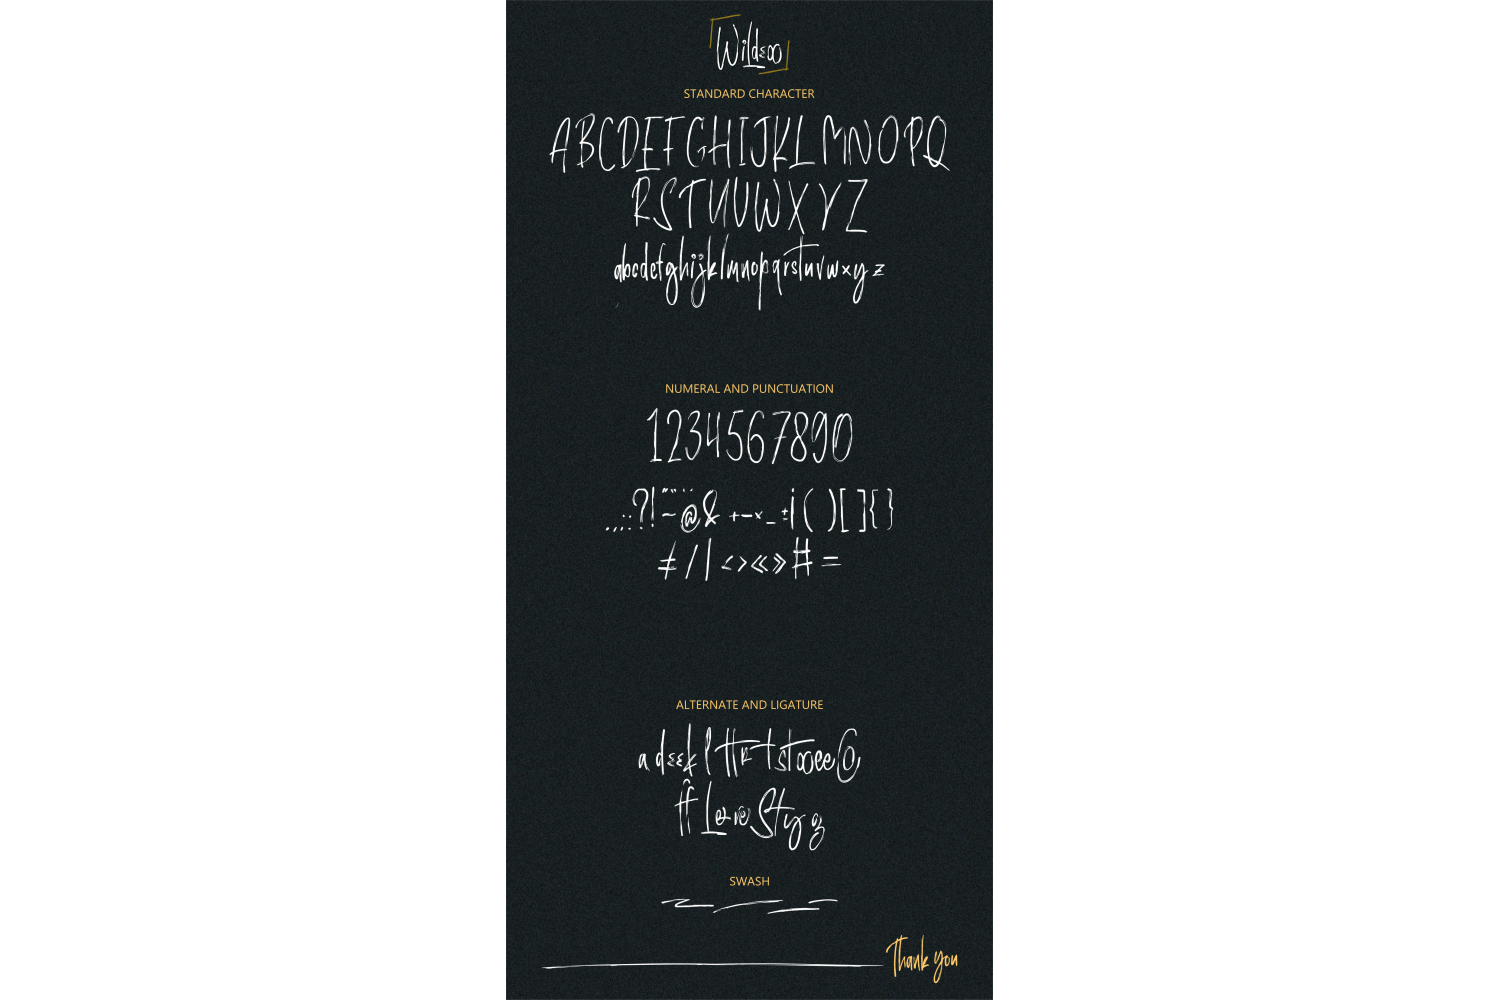 Wildeoo
STANDARD CHARACTER
ABCDEFGHIJKLMNOPQ
RSTUVWXYZ
abcdefghijklmnopqrstuvwxyz
NUMERAL AND PUNCTUATION
1234567890
.,;:?!"'~@& +-×_±¡()[]{}
≠/|<>«»#=
ALTERNATE AND LIGATURE
SWASH
Thank you